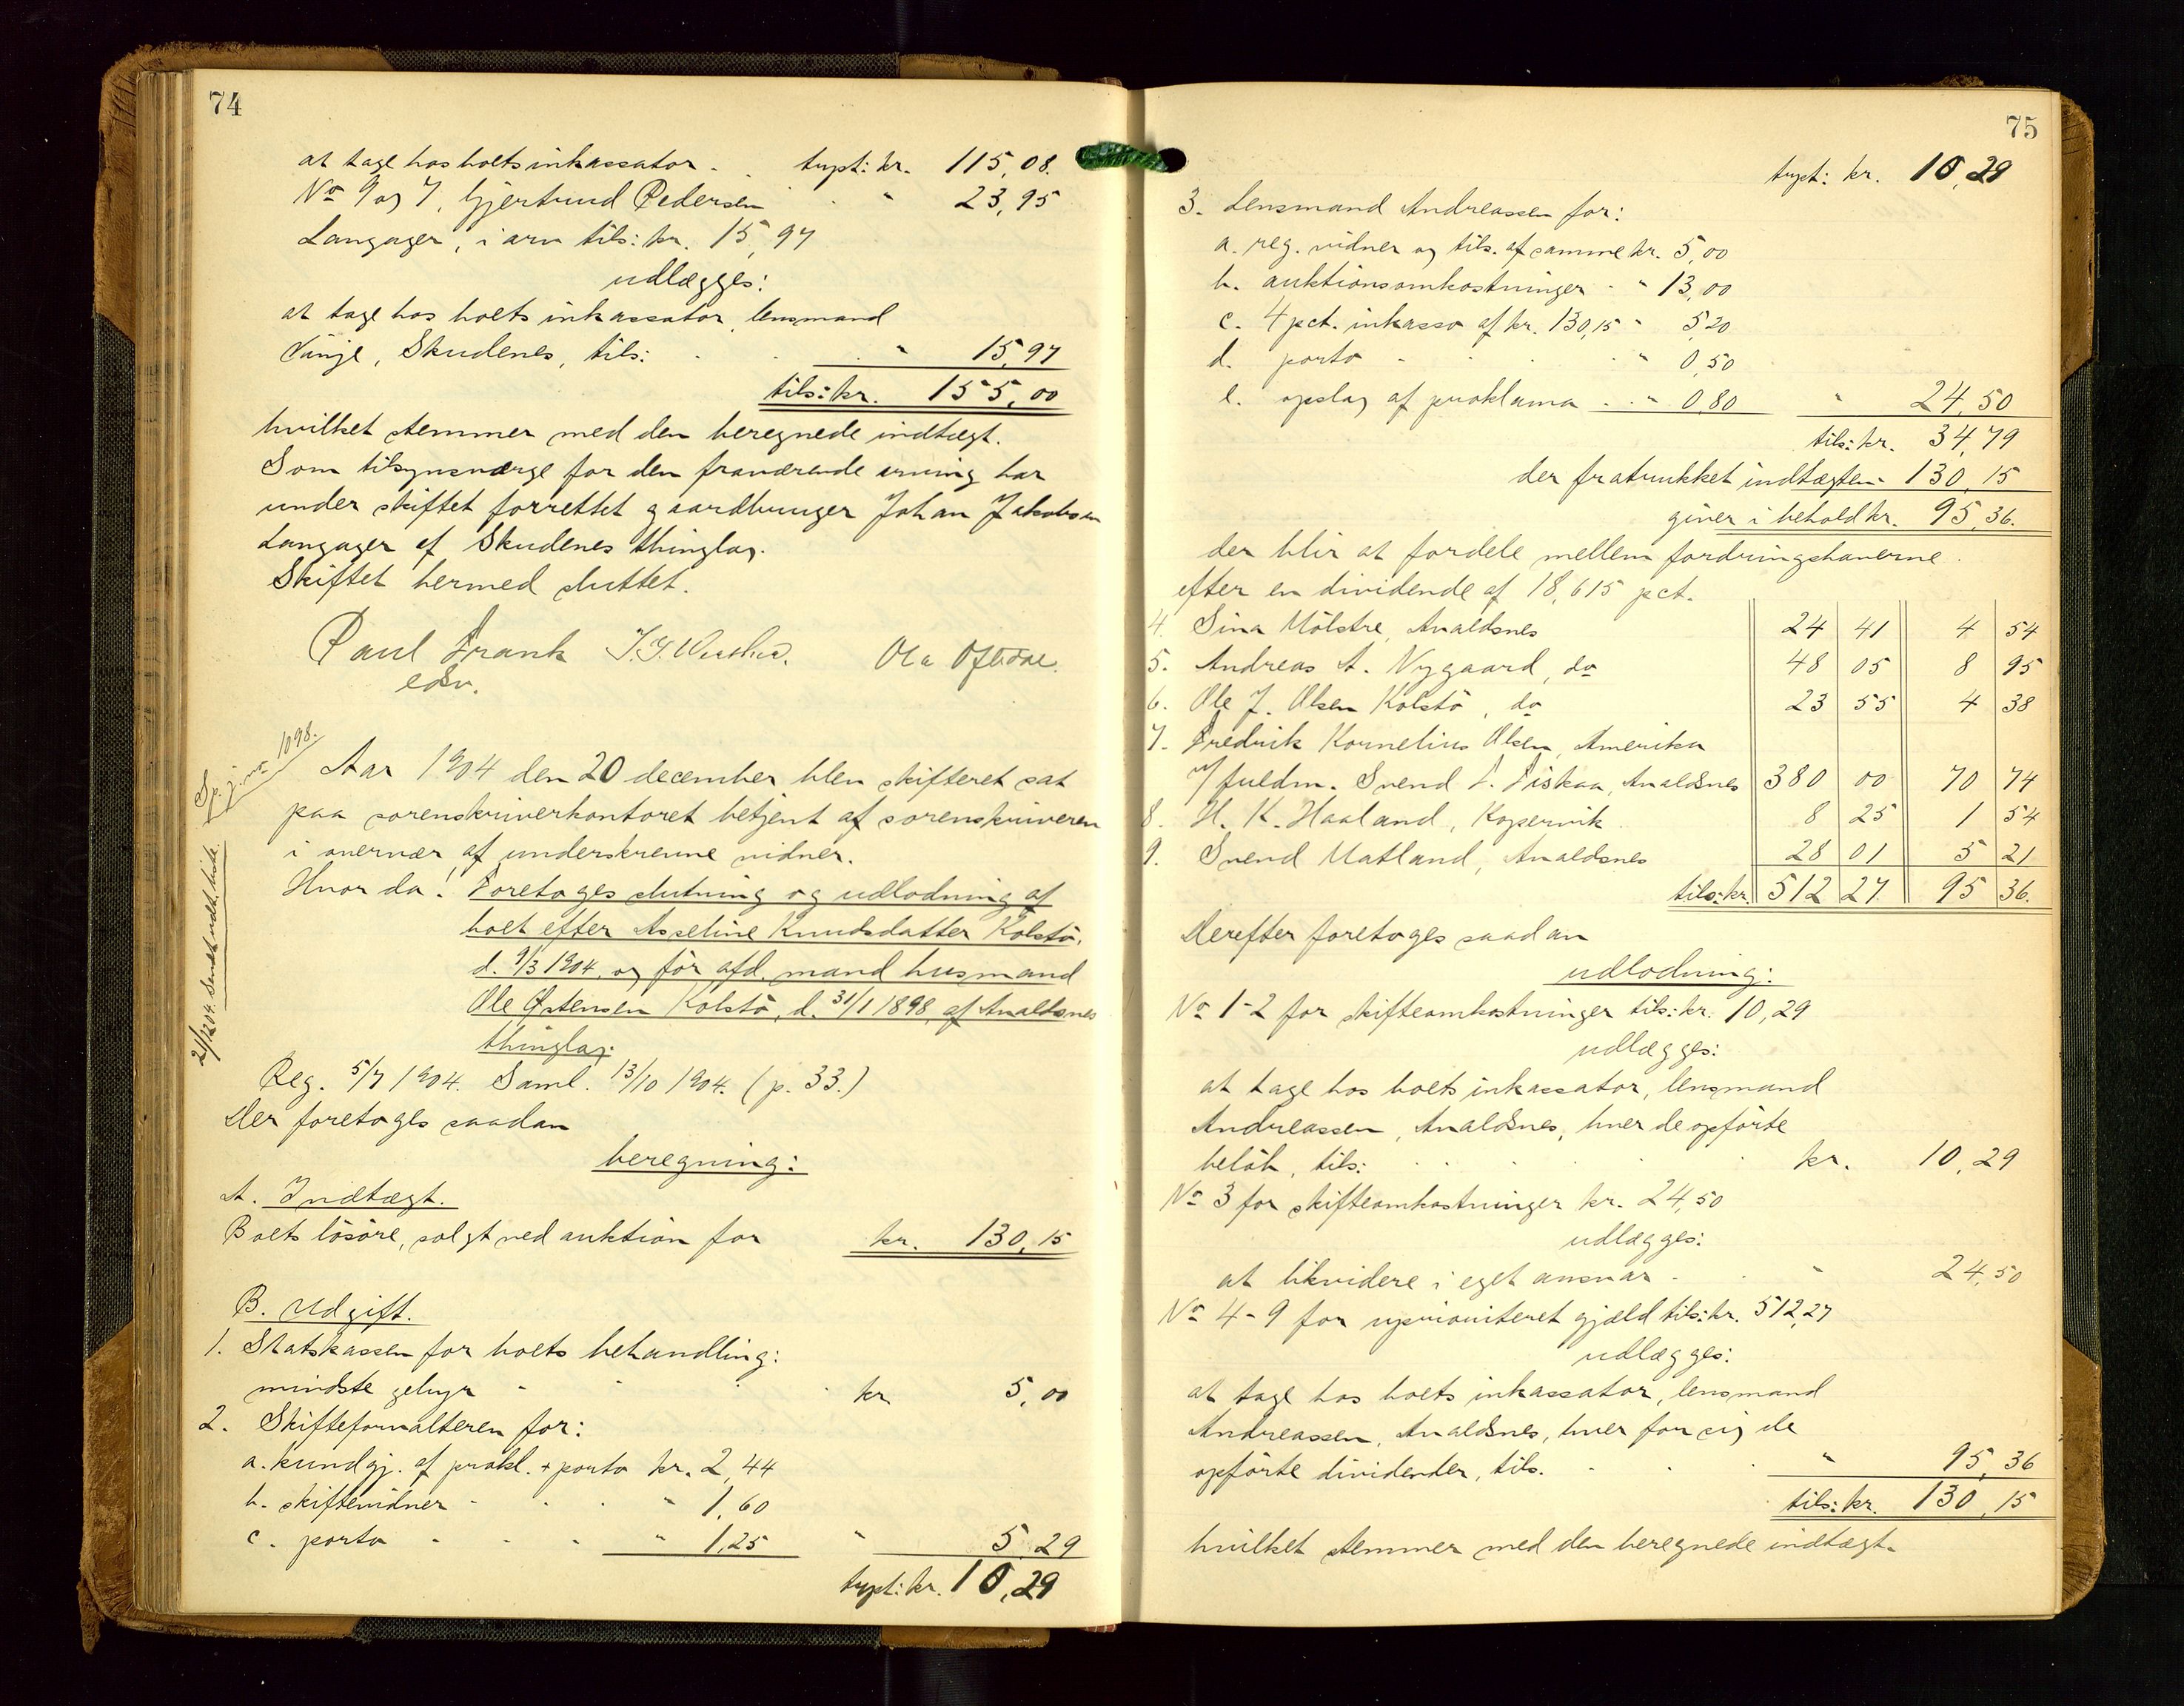 74
at tage hos boets inkassator. trpt: kr. 115,08.
No 9 og 7, Gjertrud Pedersen " 23,95
Langager, i arv tils: kr. 15,97
udlægges:
at tage hos boets inkassator, lensmand
Vinje, Skudenes, tils: " 15,97
tils: kr. 155,00
hvilket stemmer med den beregnede indtægt.
Som tilsynsværge for den fraværende arving har
under skiftet forrettet gaardbruger Johan Jakobsen
Langager af Skudenes thinglag.
Skiftet hermed sluttet.
Paul Frank
edsv.
Ola Oftedal.
Sp. j. no 1098.
Aar 1904 den 20 december blev skifteret sat
paa sorenskriverkontoret betjent af sorenskriveren
i overvær af underskrevne vidner.
Hvor da: Foretoges slutning og udlodning af
boet efter Asseline Knudsdatter Kolstö,
d. 9/3 1904, og för afd. mand husmand
Ole Östensen Kolstö, d. 31/1 1898, af Avaldsnes
thinglag.
21/12 04. Sendt udt. liste.
Reg. 5/7 1904. Saml. 13/10 1904. (p. 33.)
Der foretoges saadan
beregning:
A. Indtægt.
Boets lösöre, solgt ved auktion for kr. 130,15
B. Udgift.
1. Statskassen for boets behandling:
mindste gebyr kr. 5,00
2. Skifteforvalteren for:
a. kundgj. af prokl. + porto kr. 2,44
b. skiftevidner " 1,60
c. porto " 1,25 " 5,29
trpt: kr. 10,29
75
trpt: kr. 10,29
3. Lensmand Andreassen for:
a. reg. vidner og tils. af samme kr. 5,00
b. auktionsomkostninger " 13,00
c. 4 pct. inkasso af kr. 130,15 " 5,20
d. porto " 0,50
e. opslag af proklama " 0,80 " 24,50
tils: kr. 34,79
der fratrukket indtægten " 130,15
giver i behold kr. 95,36.
der blir at fordele mellem fordringshaverne
efter en dividende af 18,615 pct.
4. Sina Mölstre, Avaldsnes 24 41 4 54
5. Andreas A. Nygaard, do 48 05 8 95
6. Ole J. Olsen Kolstö, do 23 55 4 38
7. Fredrik Kornelius Olsen, Amerika
v/ fuldm. Svend F. Fiskaa, Avaldsnes 380 00 70 74
8. H. K. Haaland, Kopervik 8 25 1 54
9. Svend Matland, Avaldsnes 28 01 5 21
tils: kr. 512 27. 95 36.
Derefter foretoges saadan
udlodning:
No 1-2 for skifteomkostninger tils: kr. 10,29
udlægges:
at tage hos boets inkassator, lensmand
Andreassen, Avaldsnes, hver de opförte
belöb, tils: kr. 10,29
No 3 for skifteomkostninger kr. 24,50
udlægges:
at likvidere i eget ansvar " 24,50
No 4-9 for uprioriteret gjæld tils: kr. 512,27
udlægges:
at tage hos boets inkassator, lensmand
Andreassen, Avaldsnes, hver for sig de
opförte dividender, tils. " 95,36
tils: kr. 130,15
hvilket stemmer med den beregnede indtægt.